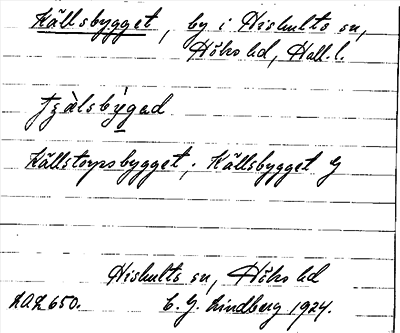 Källsbygget, by i Hishults sn,
Höks hd, Hall. l.
Källstorpsbygget, Källsbygget G
Hishults sn, Höks hd
C. G. Lindberg 1924.